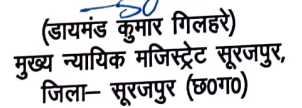 (डायमंड कुमार गिलहरे)
मुख्य न्यायिक मजिस्ट्रेट सूरजपुर,
जिला– सूरजपुर (छ0ग0)